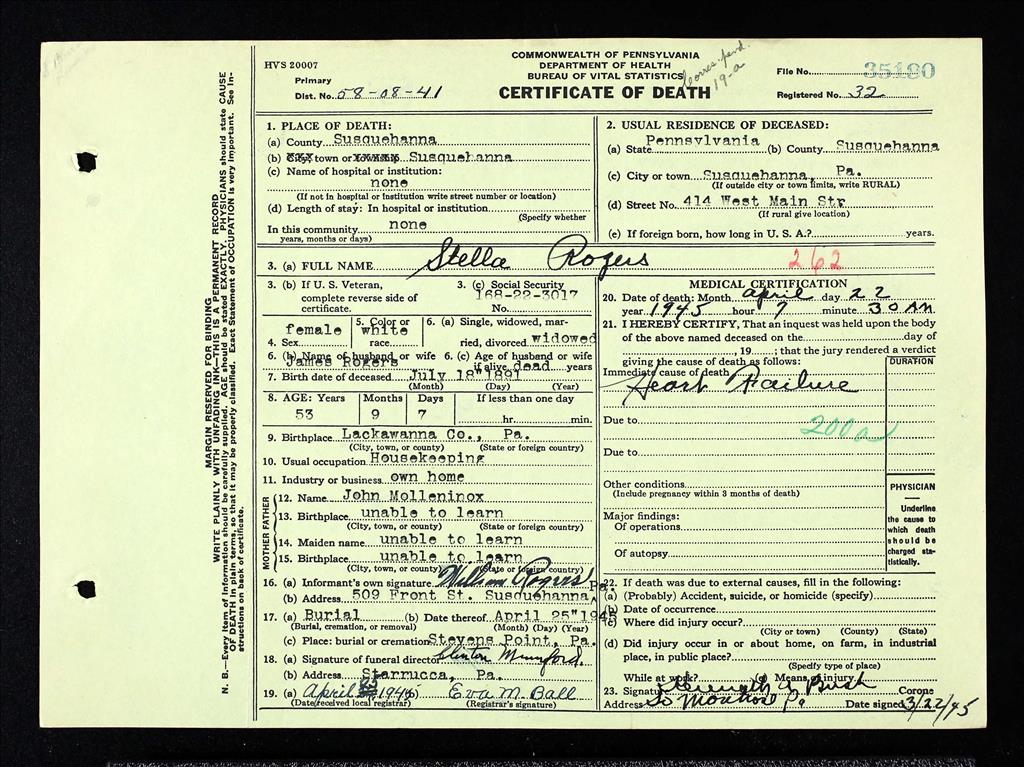 HVS 20007
COMMONWEALTH OF PENNSYLVANIA
DEPARTMENT OF HEALTH
BUREAU OF VITAL STATISTICS
CERTIFICATE OF DEATH
19-a
Primary
Dist. No. 58-08-41
File No. 35180
Registered No. 32
MARGIN RESERVED FOR BINDING
WRITE PLAINLY WITH UNFADING INK—THIS IS A PERMANENT RECORD
N. B.—Every item of information should be carefully supplied. AGE should be stated EXACTLY. PHYSICIANS should state CAUSE
OF DEATH in plain terms, so that it may be properly classified. Exact Statement of OCCUPATION is very important. See in-
structions on back of certificate.
1. PLACE OF DEATH:
(a) County Susquehanna
(b) town or Susquehanna
(c) Name of hospital or institution:
none
(If not in hospital or institution write street number or location)
(d) Length of stay: In hospital or institution
(Specify whether
In this community none
years, months or days)
2. USUAL RESIDENCE OF DECEASED:
(a) State Pennsylvania (b) County Susquehanna
(c) City or town Susquehanna, Pa.
(If outside city or town limits, write RURAL)
(d) Street No. 414 West Main Str
(If rural give location)
(e) If foreign born, how long in U. S. A.? years.
3. (a) FULL NAME Stella Rogers 262
3. (b) If U. S. Veteran,
complete reverse side of
certificate.
3. (c) Social Security
168-22-3017
No.
female
4. Sex
5. Color or
white
race
6. (a) Single, widowed, mar-
ried, divorced widowed
6. (b) Name of husband or wife
James Rogers
6. (c) Age of husband or wife
if alive dead years
7. Birth date of deceased July 18" 1891
(Month) (Day) (Year)
8. AGE: Years Months Days If less than one day
53 9 7 hr. min.
9. Birthplace Lackawanna Co., Pa.
(City, town, or county) (State or foreign country)
10. Usual occupation Housekeeping
11. Industry or business own home
FATHER
12. Name John Molleninox
13. Birthplace unable to learn
(City, town, or county) (State or foreign country)
MOTHER
14. Maiden name unable to learn
15. Birthplace unable to learn
(City, town, or county) (State or foreign country)
16. (a) Informant's own signature William Rogers
(b) Address 509 Front St. Susquehanna, Pa.
17. (a) Burial (b) Date thereof April 25" 1945
(Burial, cremation, or removal) (Month) (Day) (Year)
(c) Place: burial or cremation Stevens Point, Pa.
18. (a) Signature of funeral director Clinton Mumford.
(b) Address Starrucca, Pa.
19. (a) April (b) Eva M. Ball
(Date received local registrar) (Registrar's signature)
MEDICAL CERTIFICATION
20. Date of death: Month April day 22
year 1945 hour 7 minute 30 AM
21. I HEREBY CERTIFY, That an inquest was held upon the body
of the above named deceased on the day of
, 19 ; that the jury rendered a verdict
giving the cause of death as follows:
DURATION
Immediate cause of death
Heart Failure
Due to 200a
Due to
Other conditions
(Include pregnancy within 3 months of death)
Major findings:
Of operations
Of autopsy
PHYSICIAN
Underline
the cause to
which death
should be
charged sta-
tistically.
22. If death was due to external causes, fill in the following:
(a) (Probably) Accident, suicide, or homicide (specify)
(b) Date of occurrence
(c) Where did injury occur?
(City or town) (County) (State)
(d) Did injury occur in or about home, on farm, in industrial
place, in public place?
(Specify type of place)
While at work? (e) Means of injury
23. Signature Corone
Address So Montrose Pa Date signed 3/22/45